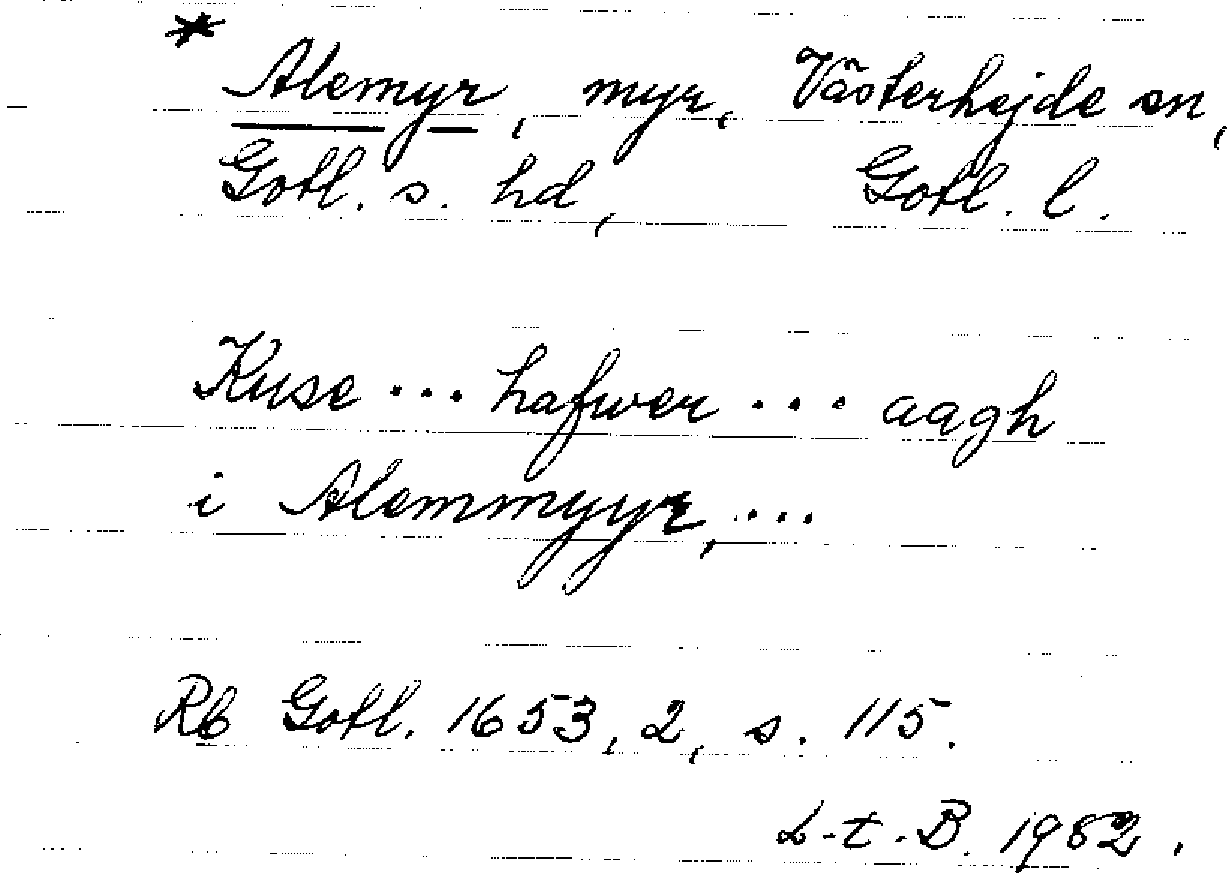 *
Alemyr, myr, Västerhejde sn,
Gotl. s. hd, Gotl. l.
Kuse ... hafwer ... aagh
i Alemmyyr, ...
Rb Gotl. 1653, 2, s. 115.
L-t. B. 1952.